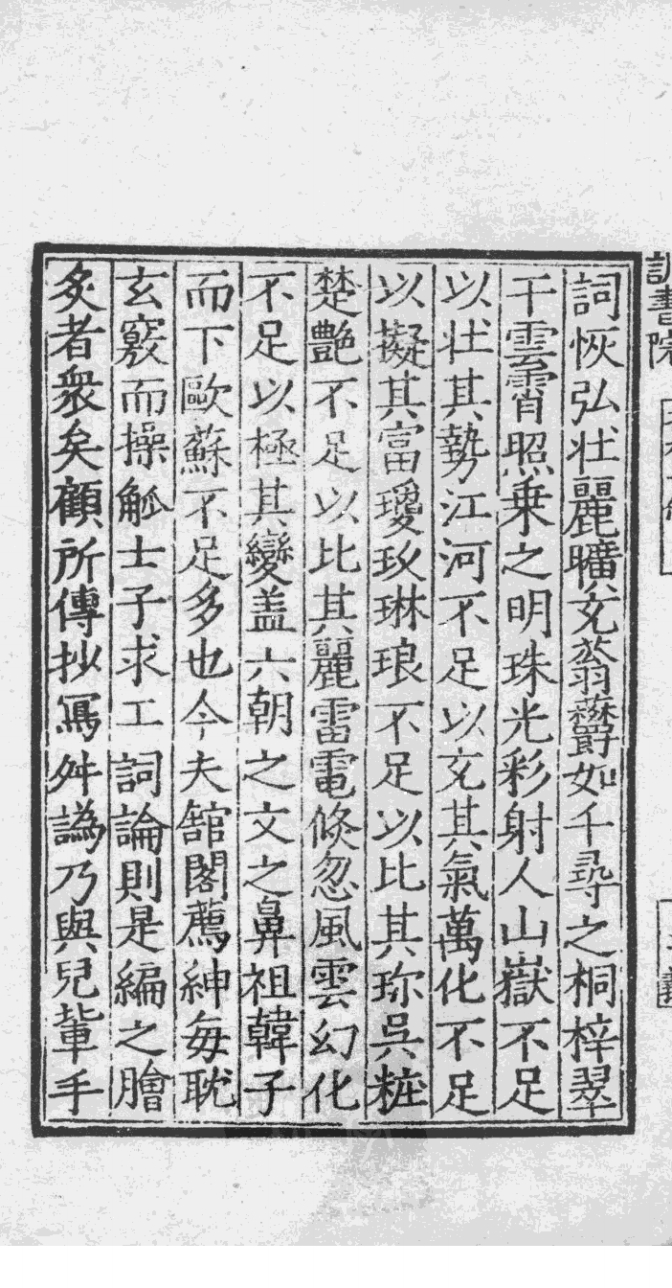 詞恢弘壮麗曠充蓊欝如千尋之桐梓翠
干雲霄照乗之明珠光彩射人山嶽不足
以壮其勢江河不足以充其氣萬化不足
以擬其富瓊玖琳琅不足以比其珎呉粧
楚艶不足以比其麗雷電倏忽風雲幻化
不足以極其變盖六朝之文之鼻祖韓子
而下歐蘇不足多也今夫舘閣薦紳毎耽
玄竅而操觚士子求工詞論則是編之膾
炙者衆矣顧所傳抄冩舛譌乃與兒軰手